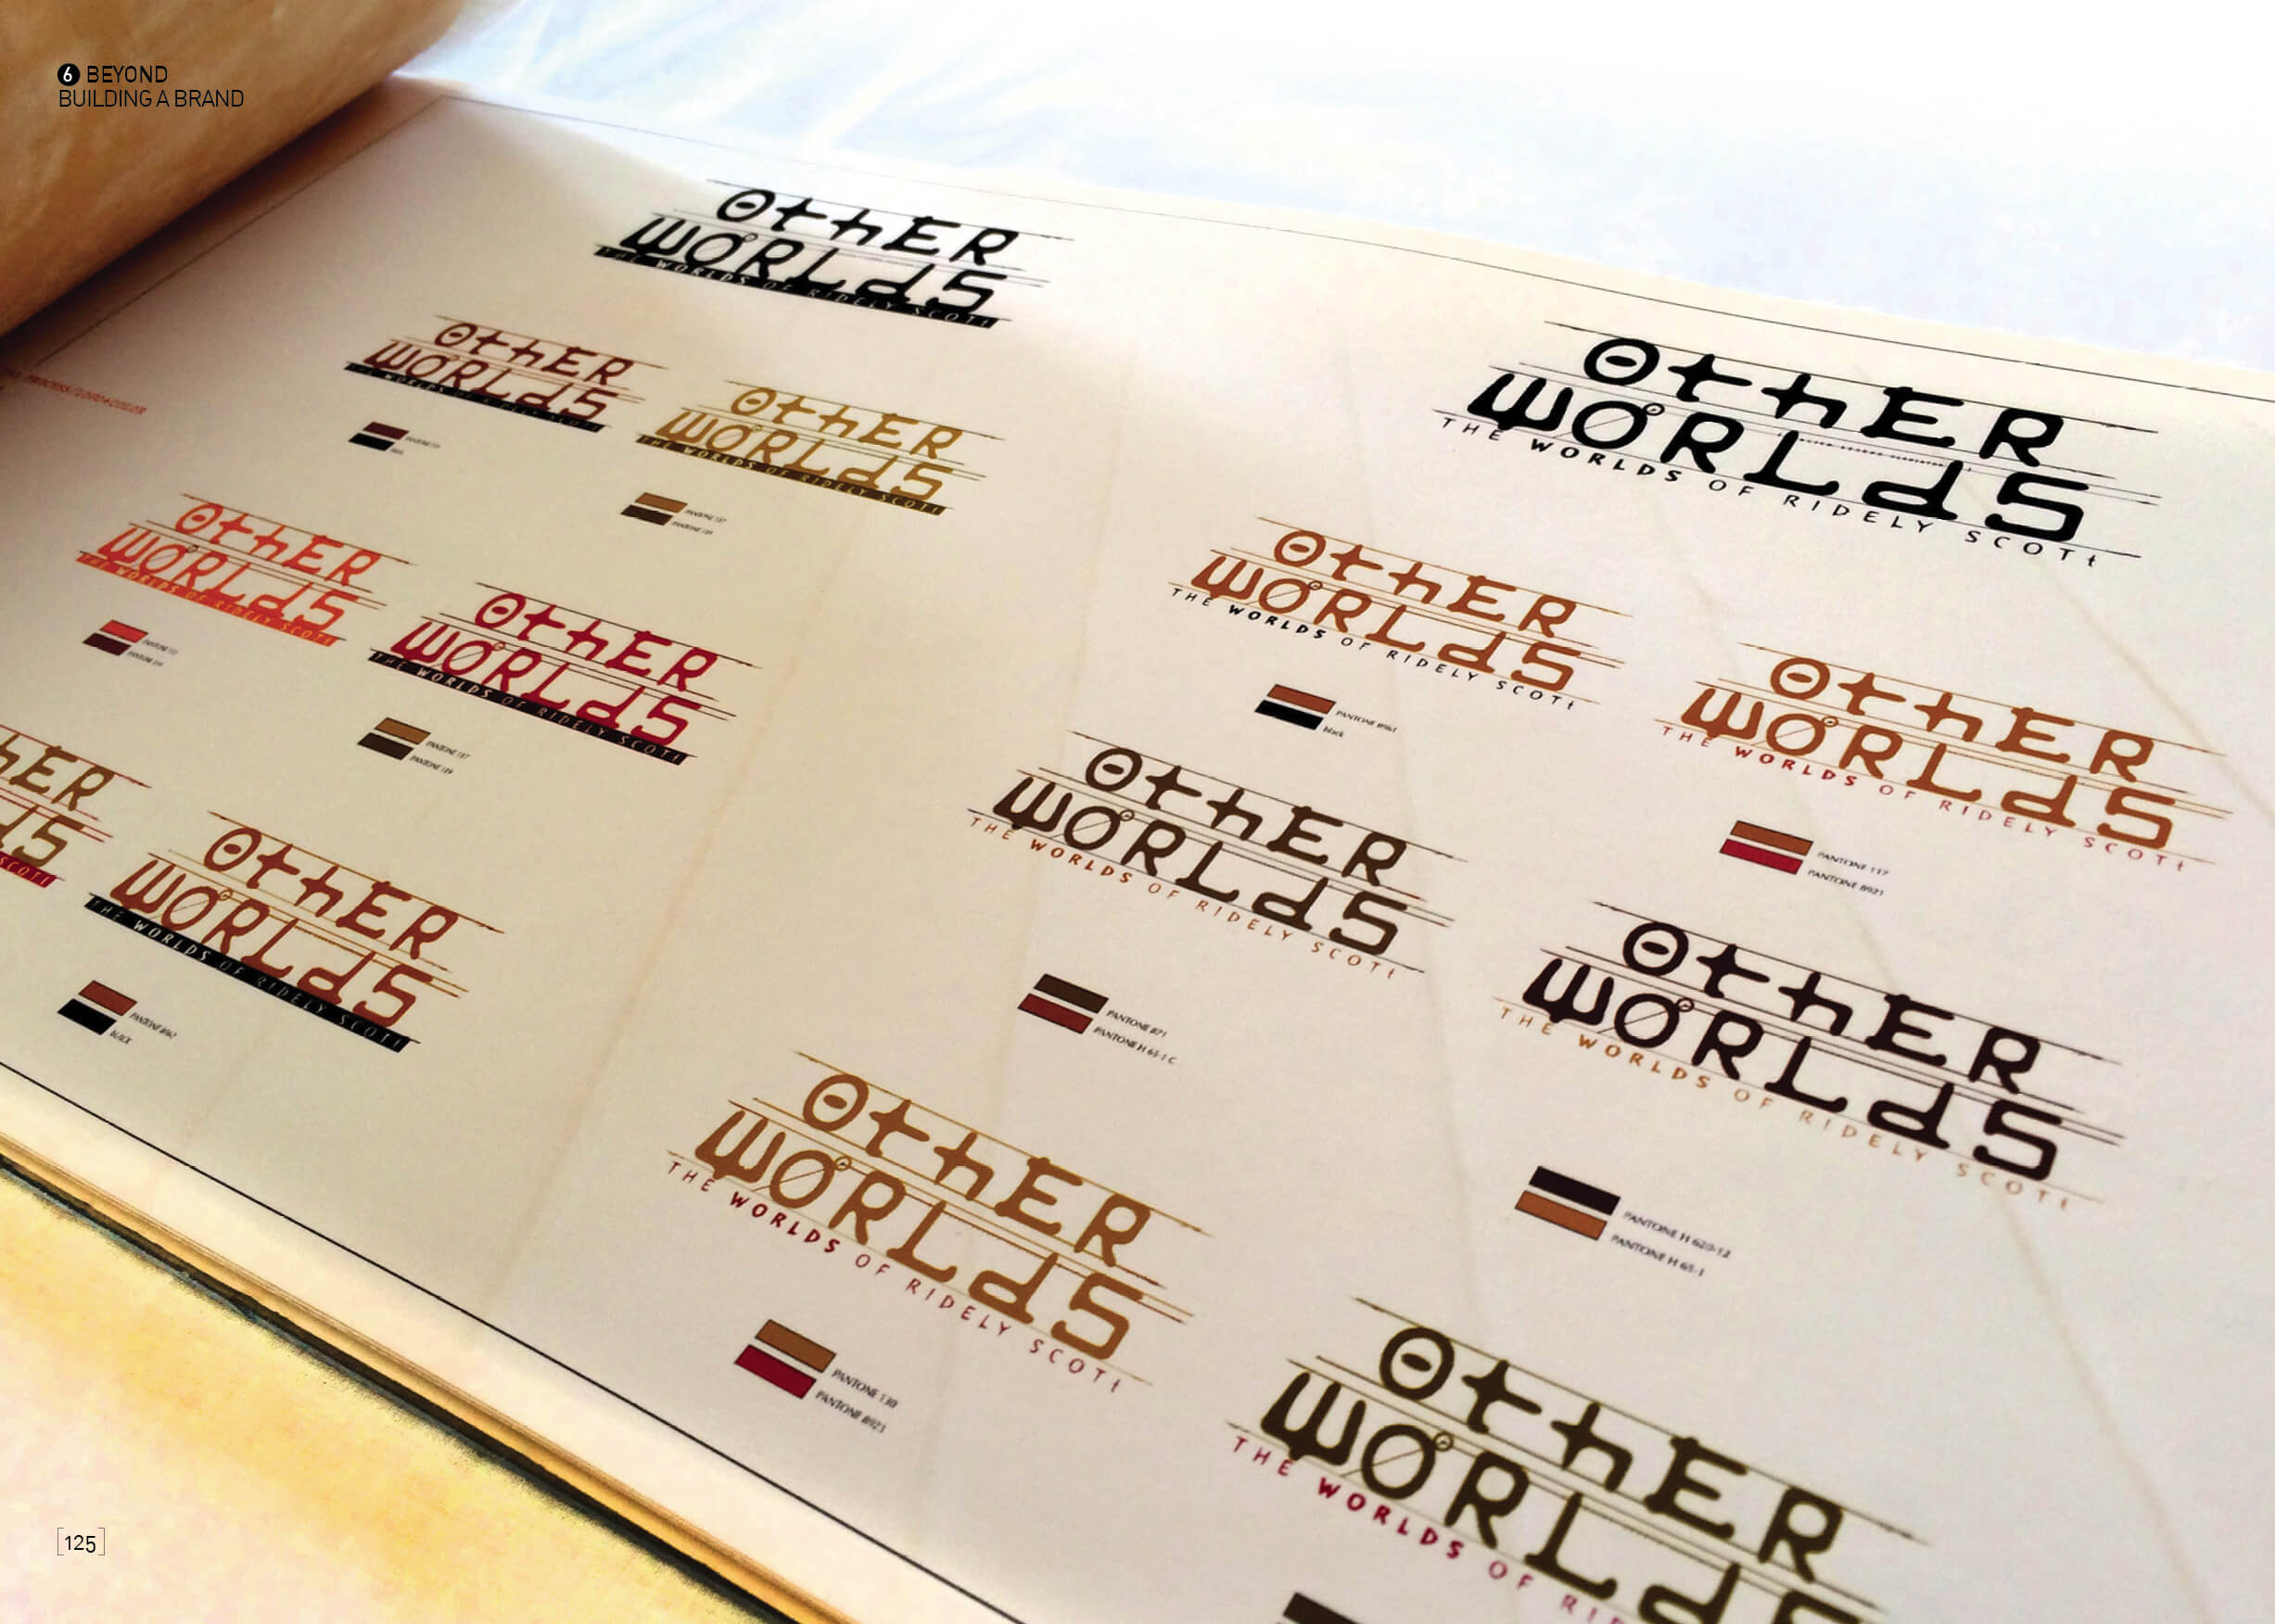 6 BEYOND
BUILDING A BRAND
OthER
WORLdS
THE WORLDS OF RIDELY SCOTt
OthER
WORLdS
THE WORLDS OF RIDELY SCOTt
OthER
WORLdS
THE WORLDS OF RIDELY SCOTt
OthER
WORLdS
THE WORLDS OF RIDELY SCOTt
PANTONE 157
PANTONE 189
OthER
WORLdS
THE WORLDS OF RIDELY SCOTt
OthER
WORLdS
THE WORLDS OF RIDELY SCOTt
black
OthER
WORLdS
THE WORLDS OF RIDELY SCOTt
PANTONE 117
PANTONE 8921
OthER
WORLdS
THE WORLDS OF RIDELY SCOTt
OthER
WORLdS
THE WORLDS OF RIDELY SCOTt
PANTONE 157
PANTONE 189
OthER
WORLdS
THE WORLDS OF RIDELY SCOTt
PANTONE 871
PANTONE H 65-1 C
OthER
WORLdS
THE WORLDS OF RIDELY SCOTt
PANTONE H 620-12
PANTONE H 65-1
hER
dS
SCOTt
OthER
WORLdS
THE WORLDS OF RIDELY SCOTt
PANTONE 8962
BLACK
OthER
WORLdS
THE WORLDS OF RIDELY SCOTt
PANTONE 130
PANTONE 8921
OthER
WORLdS
THE WORLDS OF RI
[125]